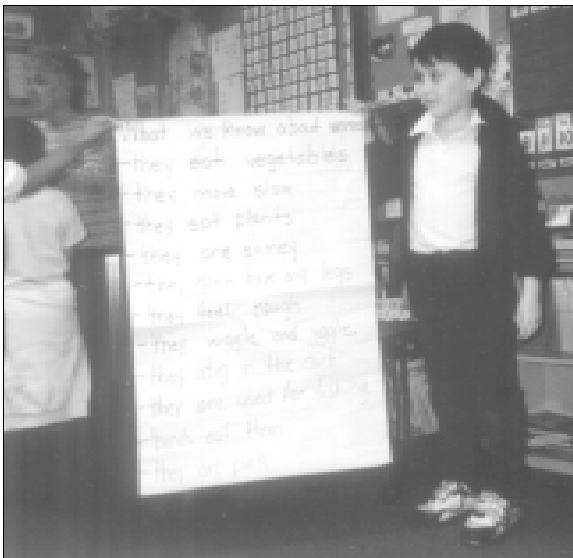 What we know about worms
-they eat vegetables
-they move slow
-they eat plants
-they are slimey
-they don't have any legs
-they feel rough
-they wiggle and
-they dig in the dirt
-they are used for fishing
-birds eat them
-they are pink